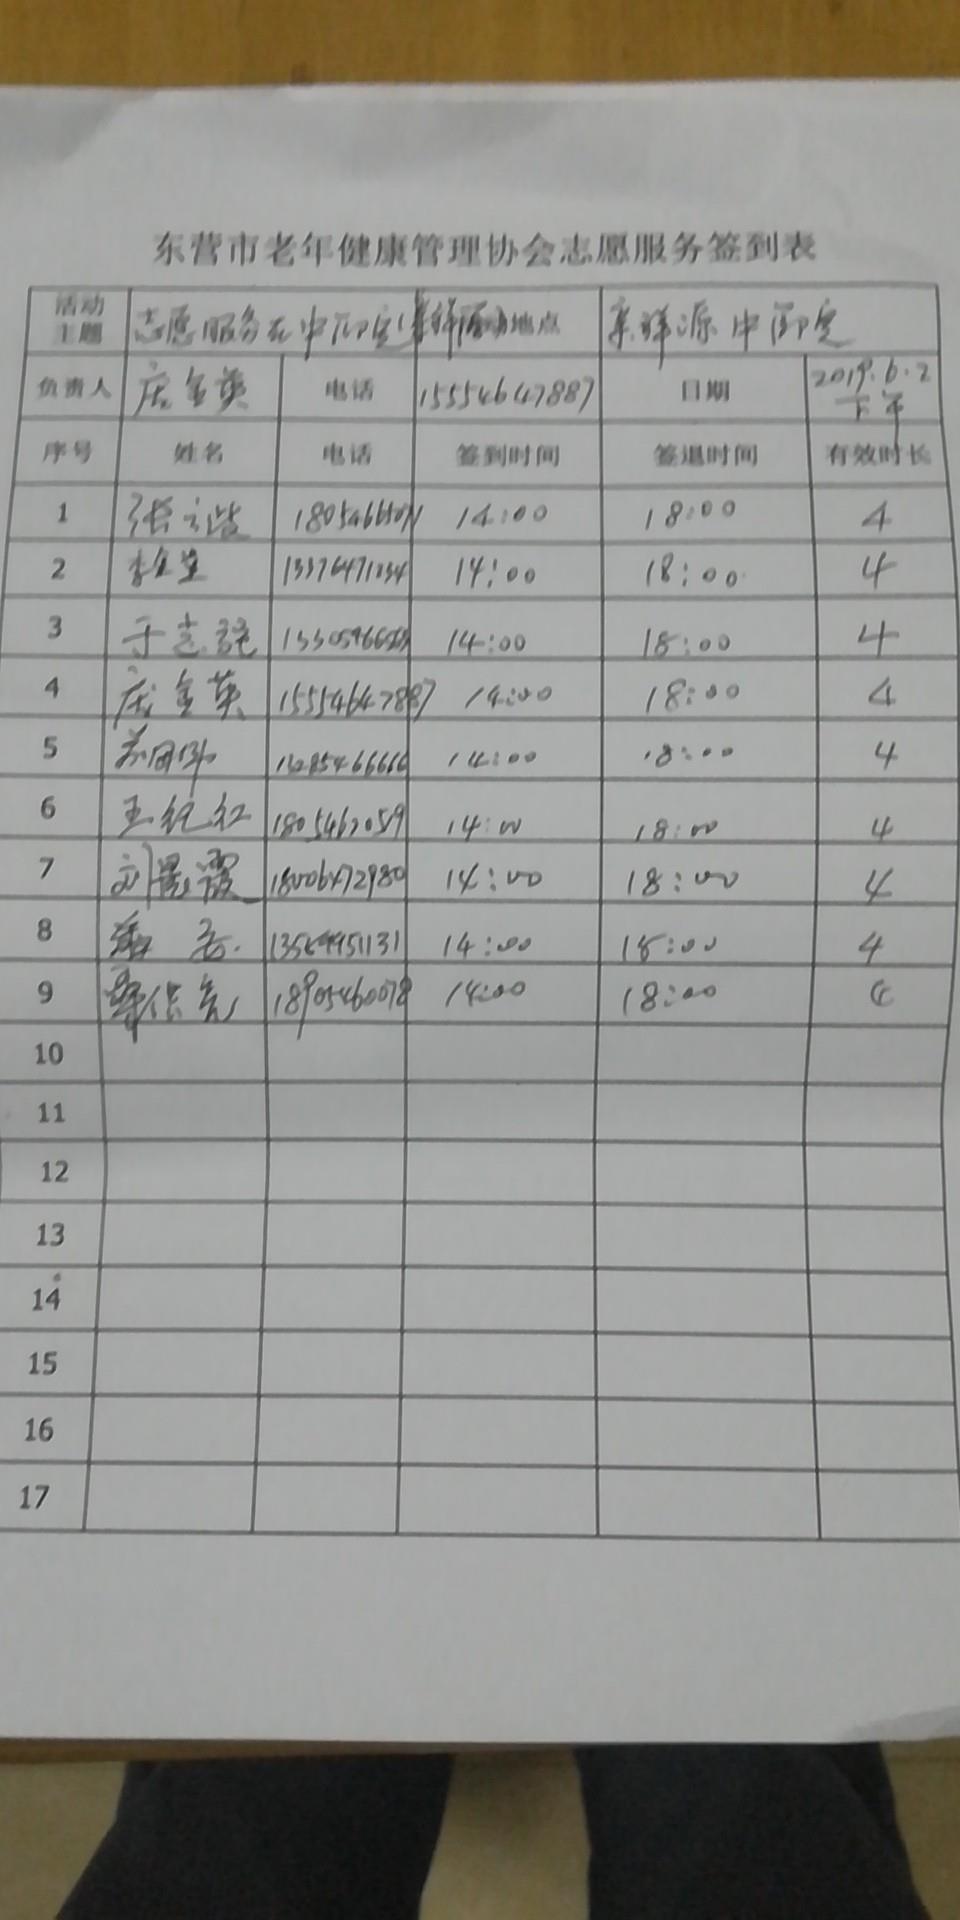 东营市老年健康管理协会志愿服务签到表
活动主题 志愿服务在中御 活动地点 祥源中御
负责人 金英 电话 15554647887 日期 2019.6.2 下午
序号 姓名 电话 签到时间 签退时间 有效时长
1 张 14:00 18:00 4
2 李 13376471234 14:00 18:00 4
3 于志 14:00 18:00 4
4 金英 15554647887 14:00 18:00 4
5 14:00 18:00 4
6 王纪红 14:00 18:00 4
7 刘景霞 18006472980 14:00 18:00 4
8 14:00 18:00 4
9 18905460078 14:00 18:00 4
10
11
12
13
14
15
16
17